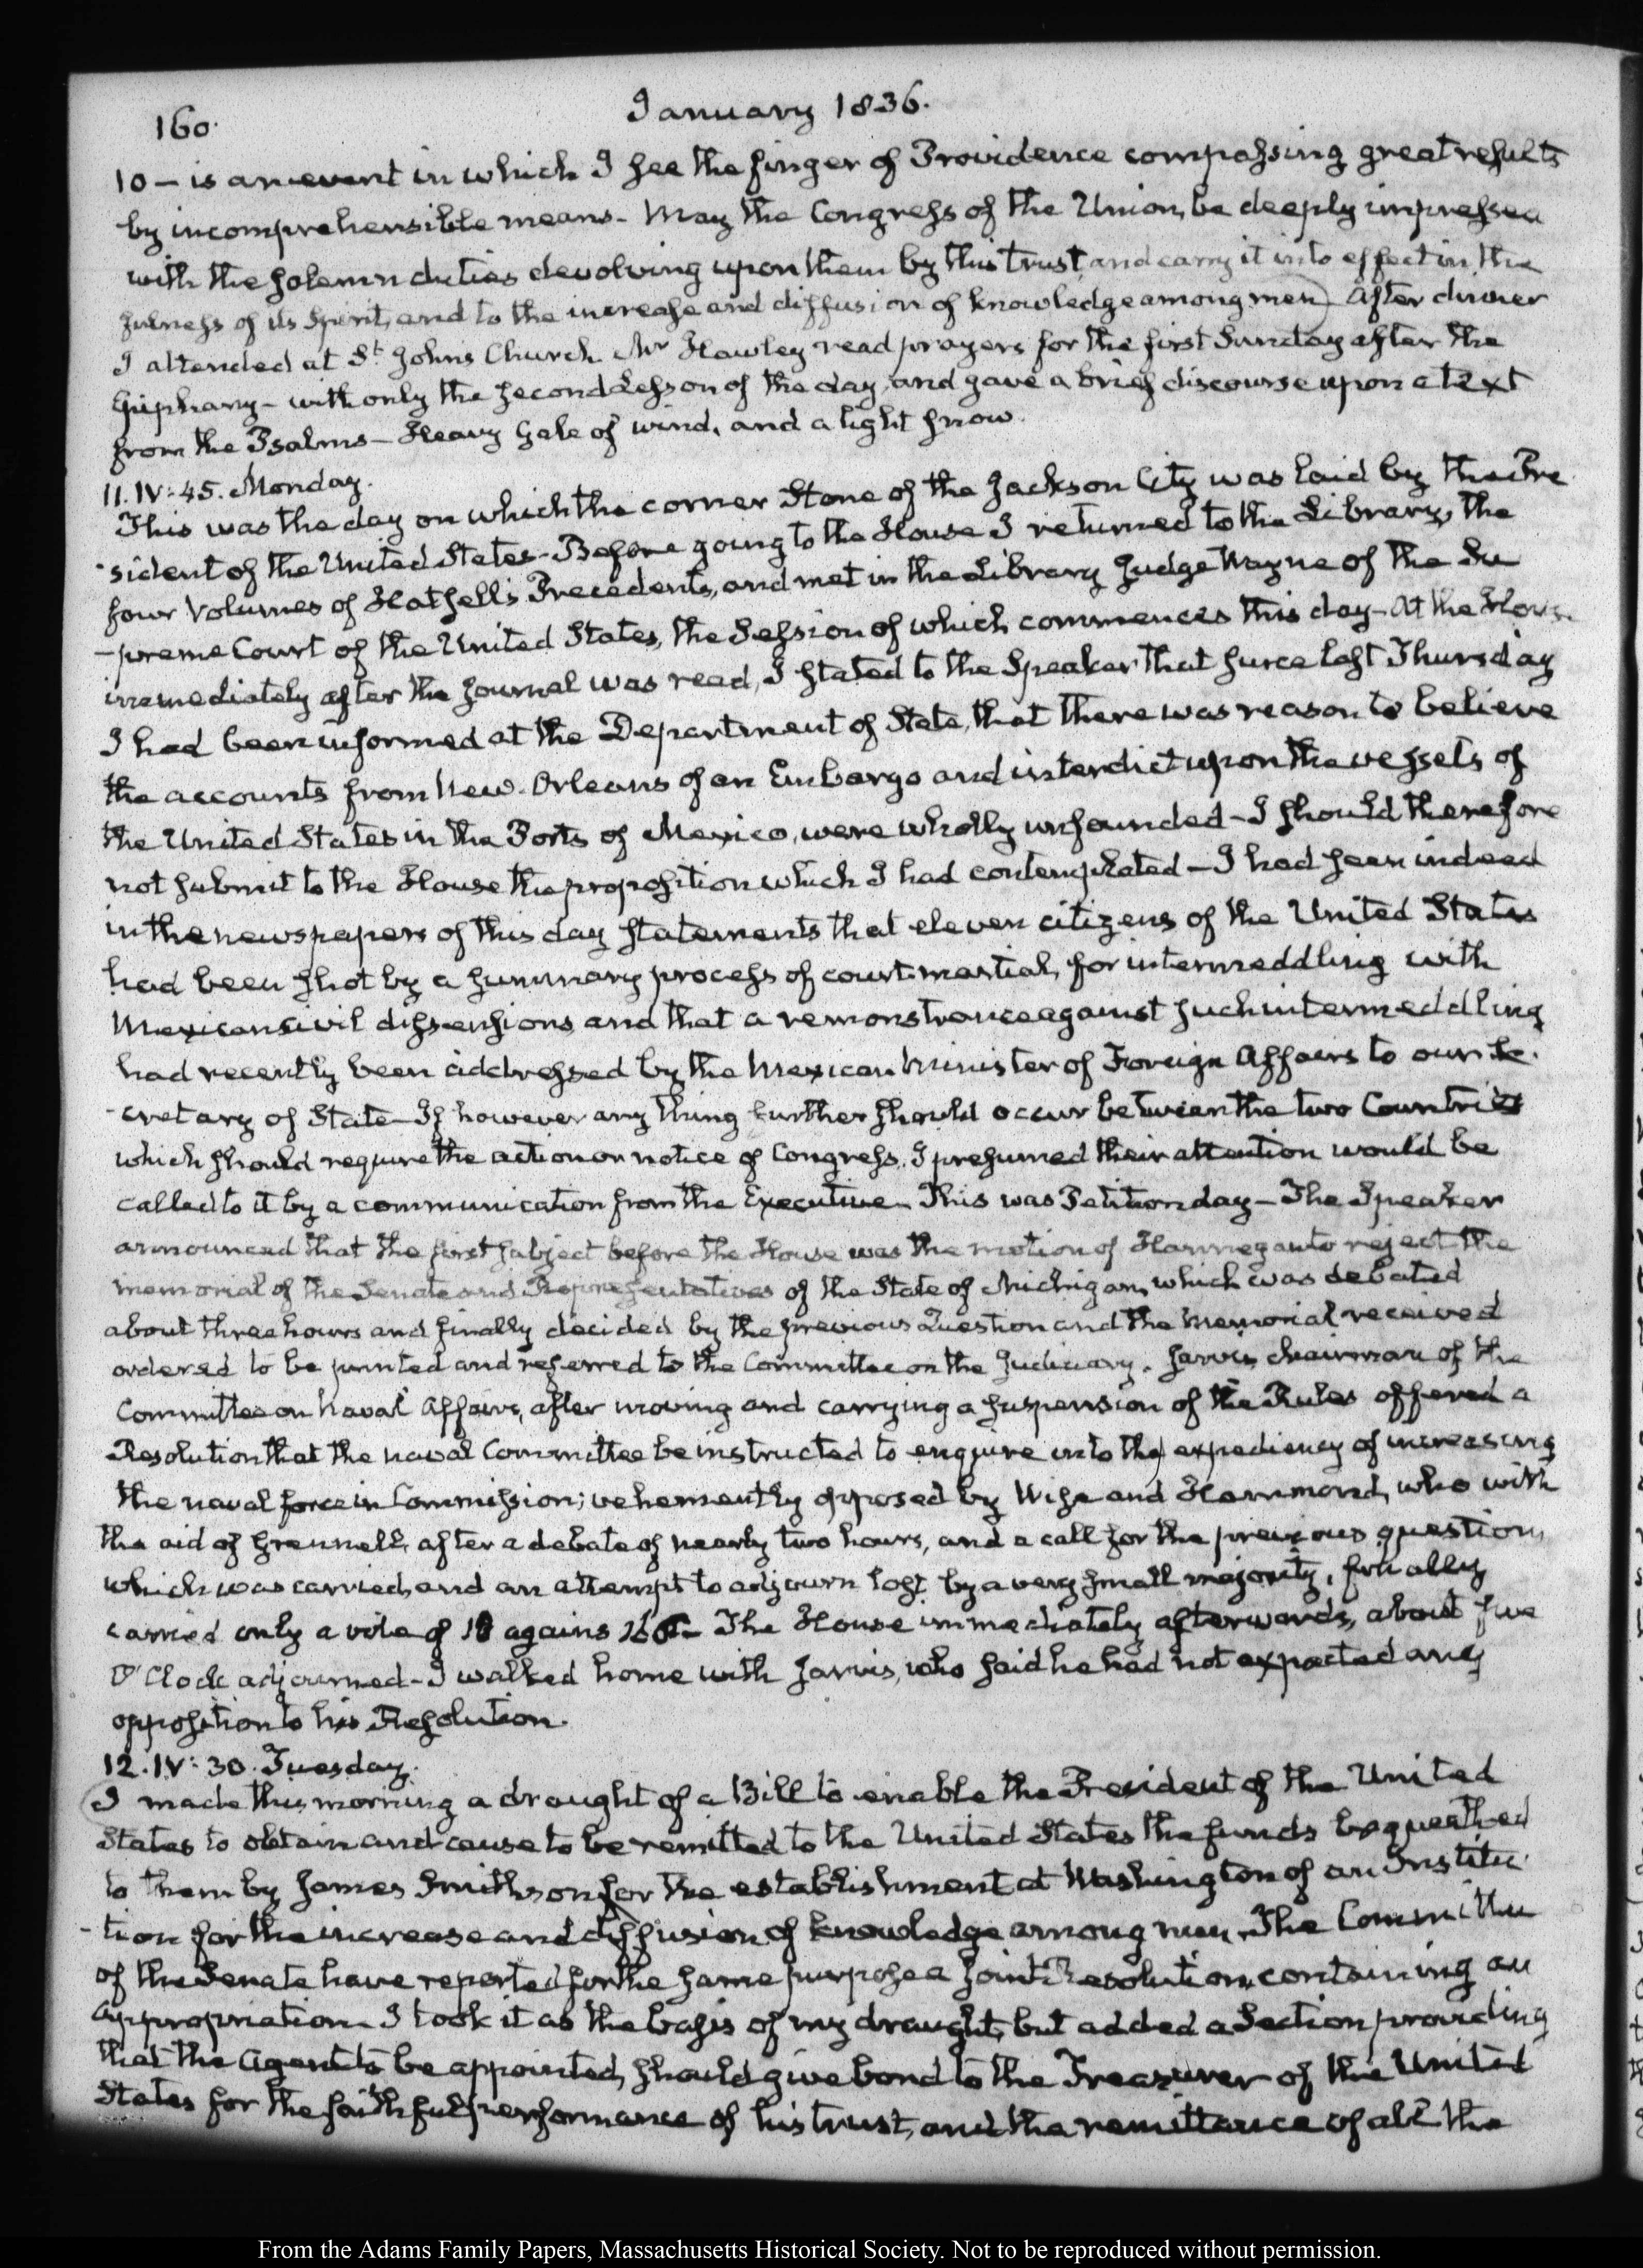 160.
January 1836.
10 — is an event in which I see the finger of Providence compassing great results
by incomprehensible means - May the Congress of the Union, be deeply impressed
with the solemn duties devolving upon them by this trust, and carry it into effect in the
fulness of its Spirit, and to the increase and diffusion of knowledge among men) After dinner
I attended at St. Johns Church. Mr Hawley read prayers for the first Sunday after the
Epiphany - with only the second Lesson of the day, and gave a brief discourse upon a text
from the Psalms - Heavy Gale of wind, and a light snow.
11. IV: 45. Monday.
This was the day on which the corner Stone of the Jackson City was laid by the Pre
-sident of the United States - Before going to the House I returned to the Library, the
four Volumes of Hatsell's Precedents, and met in the Library Judge Wayne of the Su
-preme Court of the United States, the Session of which commences this day - At the House
immediately after the Journal was read, I stated to the Speaker that since last Thursday
I had been informed at the Department of State, that there was reason to believe
the accounts from New-Orleans of an Embargo and interdict upon the vessels of
the United States in the Ports of Mexico, were wholly unfounded - I should therefore
not submit to the House the proposition which I had contemplated - I had seen indeed
in the newspapers of this day statements that eleven citizens of the United States
had been shot by a summary process of court-martial, for intermeddling with
Mexican civil dissensions and that a remonstrance against such intermeddling
had recently been addressed by the Mexican Minister of Foreign Affairs to our Se
-cretary of State - If however any thing further should occur between the two Countries
which should require the action or notice of Congress, I presumed their attention would be
called to it by a communication from the Executive - This was Petition day - The Speaker
announced that the first subject before the House was the motion of Hannegan to reject the
memorial of the Senate and Representatives of the State of Michigan, which was debated
about three hours and finally decided by the previous Question and the Memorial received
ordered to be printed and referred to the Committee on the Judiciary. Jarvis chairman of the
Committee on Naval Affairs, after moving and carrying a suspension of the Rules offered a
Resolution that the naval Committee be instructed to enquire into the expediency of increasing
the naval force in Commission; vehemently opposed by Wise and Hammond, who with
the aid of Grennell, after a debate of nearly two hours, and a call for the previous question,
which was carried, and an attempt to adjourn lost by a very small majority, finally
carried only a vote of agains The House immediately afterwards, about five
O'Clock adjourned - I walked home with Jarvis, who said he had not expected any
opposition to his Resolution.
12. IV: 30. Tuesday.
(I made this morning a draught of a Bill to enable the President of the United
States to obtain and cause to be remitted to the United States the funds bequeathed
to them by James Smithson for the establishment at Washington of an Institu
-tion for the increase and diffusion of knowledge among men. The Committee
of the Senate have reported for the same purpose a joint Resolution, containing an
appropriation. I took it as the basis of my draught, but added a Section, providing
that the Agent to be appointed, should give bond to the Treasurer of the United
States for the faithful performance of his trust, and the remittance of all the
From the Adams Family Papers, Massachusetts Historical Society. Not to be reproduced without permission.